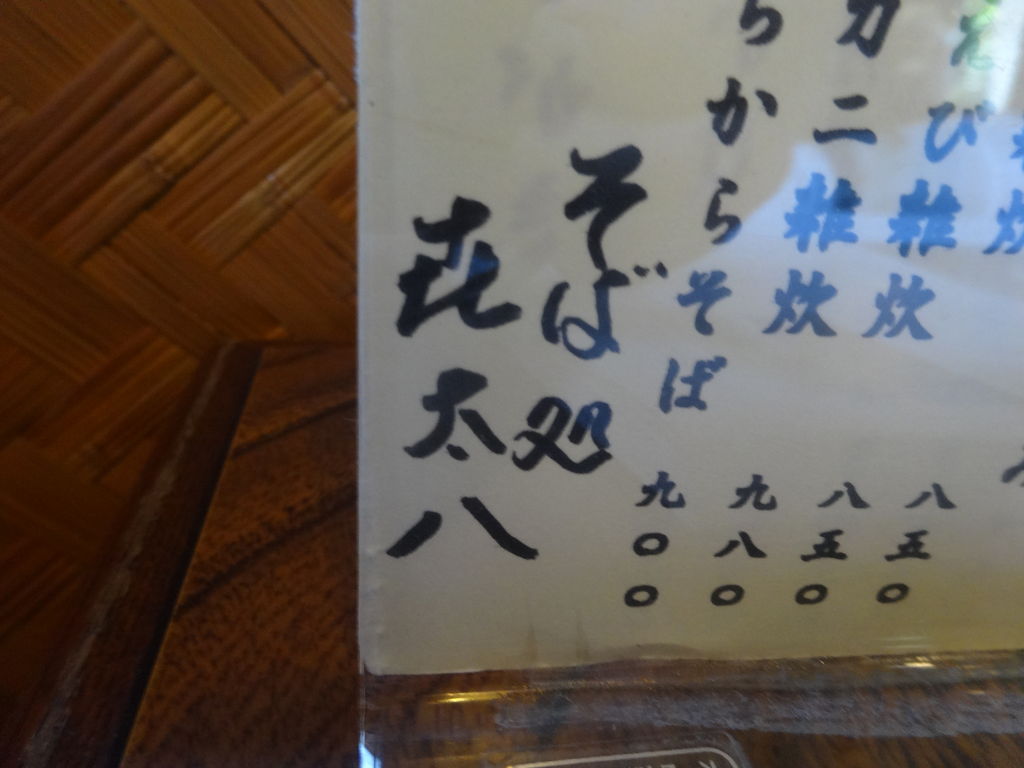 炊 八五〇
えび雑炊 八五〇
カニ雑炊 九八〇
らからそば 九〇〇
そば処
㐂太八